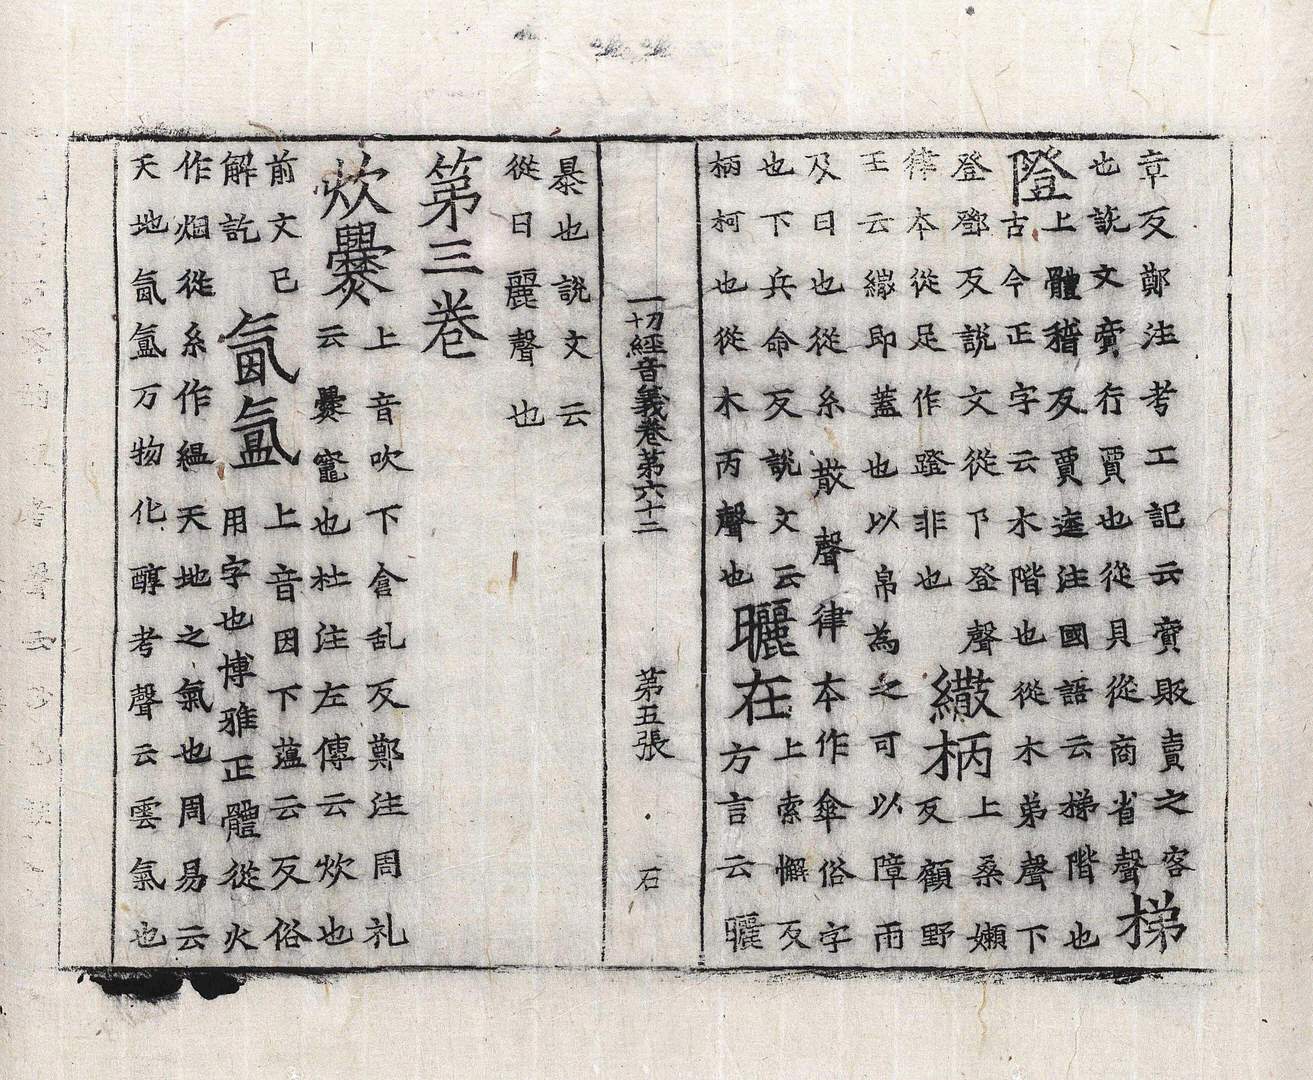 章反鄭注考工記云𧶜販賣之客
也說文𧶜行賈也從貝從商省聲
梯
隥
上體稽反賈逵注國語云梯階也
古今正字云木階也從木弟聲下
登鄧反說文從阝登聲
律本從足作蹬非也
繖柄
上桑嬾
反顧野
王云繖即蓋也以帛為之可以障雨
及日也從糸散聲律本作傘俗字
也下兵命反說文云
柄柯也從木丙聲也
曬在
上索懈反
方言云曬
一切經音義卷第六十二 第五張 石
暴也說文云
從日麗聲也
第三卷
炊爨
上音吹下倉乱反鄭注周礼
云爨竈也杜注左傳云炊也
前文已
解訖
氤氳
上音因下蕰云反俗
用字也博雅正體從火
作烟從糸作緼天地之氣也周易云
天地氤氳万物化醇考聲云雲氣也